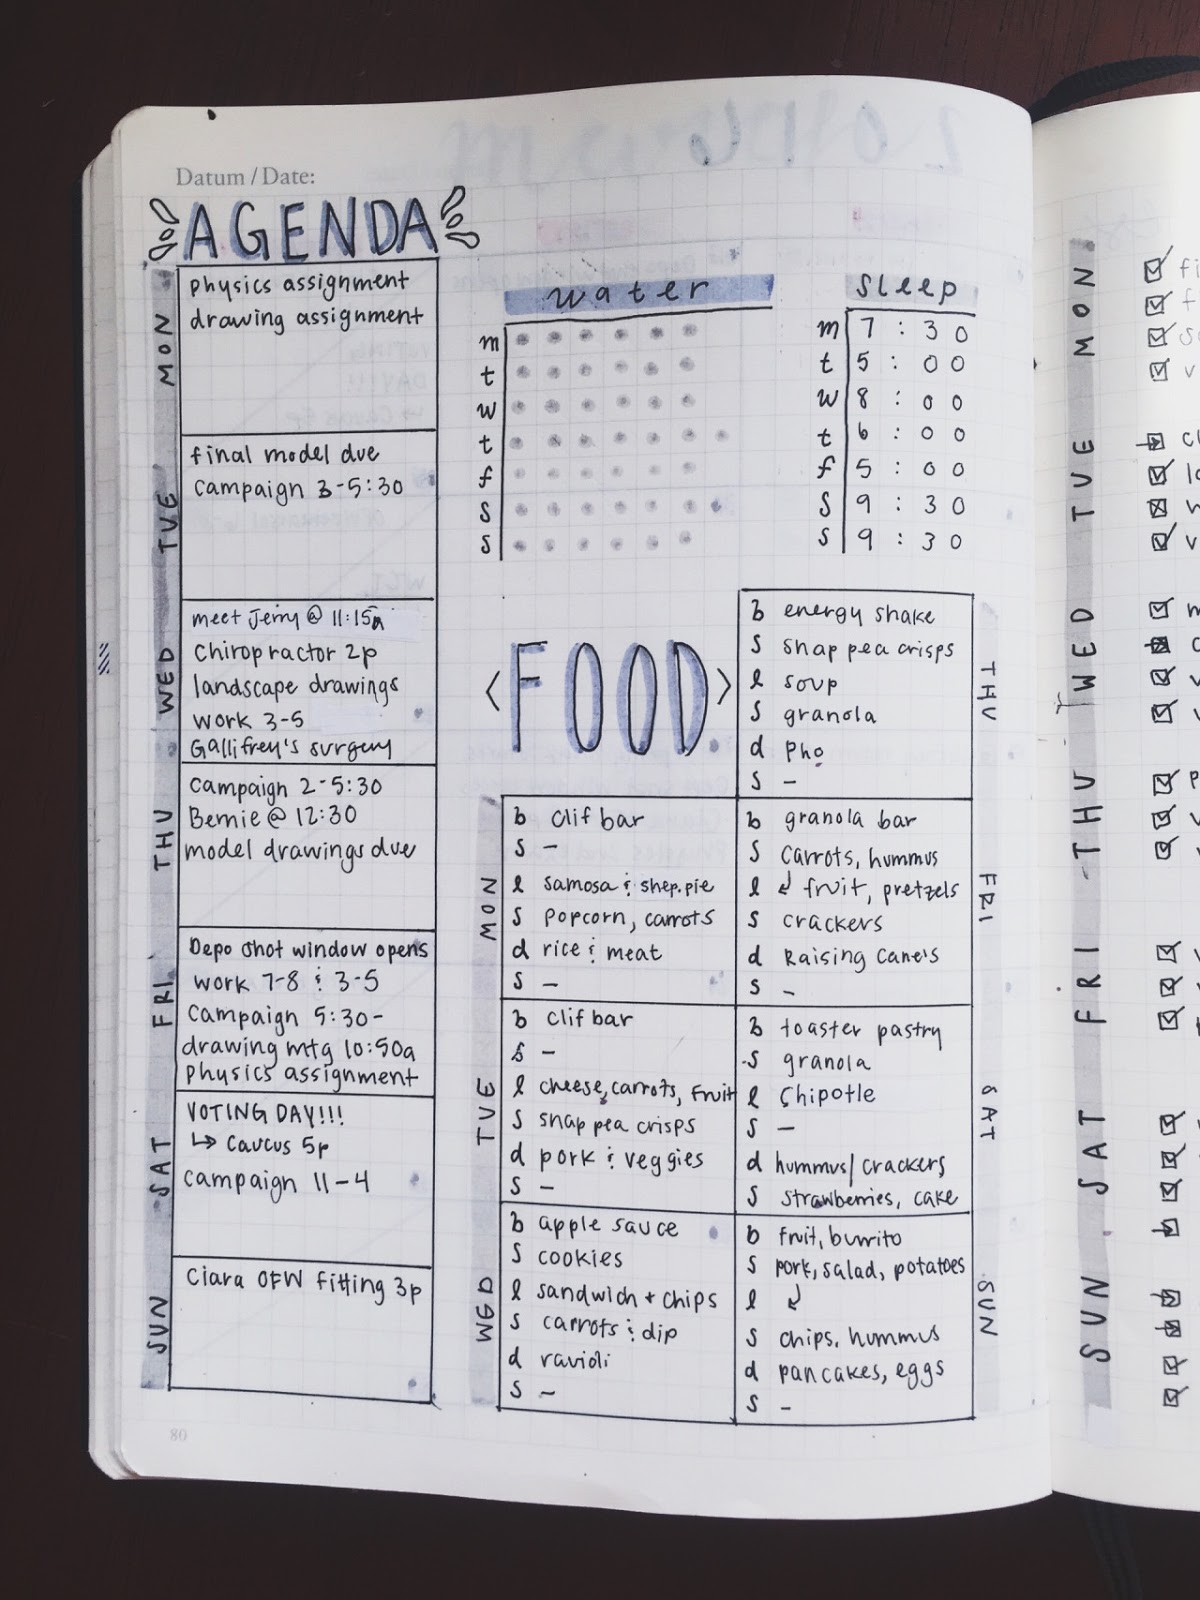 Datum / Date:
AGENDA
MON
physics assignment
drawing assignment
TUE
final model due
campaign 3-5:30
WED
meet Jerry @ 11:15a
Chiropractor 2p
landscape drawings
work 3-5
Gallifrey's surgery
THU
Campaign 2-5:30
Bernie @ 12:30
model drawings due
FRI
Depo shot window opens
work 7-8 & 3-5
Campaign 5:30-
drawing mtg 10:50a
physics assignment
SAT
VOTING DAY!!!
↳ Caucus 5p
Campaign 11-4
SUN
Ciara OFW fitting 3p
80
water
m
t
w
t
f
s
s
sleep
m 7:30
t 5:00
w 8:00
t 6:00
f 5:00
s 9:30
s 9:30
<FOOD>
MON
b clif bar
s -
l samosa & shep. pie
s popcorn, carrots
d rice & meat
s -
TUE
b clif bar
s -
l cheese, carrots, fruit
s snap pea crisps
d pork & veggies
s -
WED
b apple sauce
s cookies
l sandwich + chips
s carrots & dip
d ravioli
s -
THU
b energy shake
s snap pea crisps
l soup
s granola
d pho
s -
FRI
b granola bar
s carrots, hummus
l ↲ fruit, pretzels
s crackers
d Raising Cane's
s -
SAT
b toaster pastry
s granola
l Chipotle
s -
d hummus/crackers
s strawberries, cake
SUN
b fruit, burrito
s pork, salad, potatoes
l ↲
s chips, hummus
d pancakes, eggs
s -
MON
TUE
WED
THU
FRI
SAT
SUN